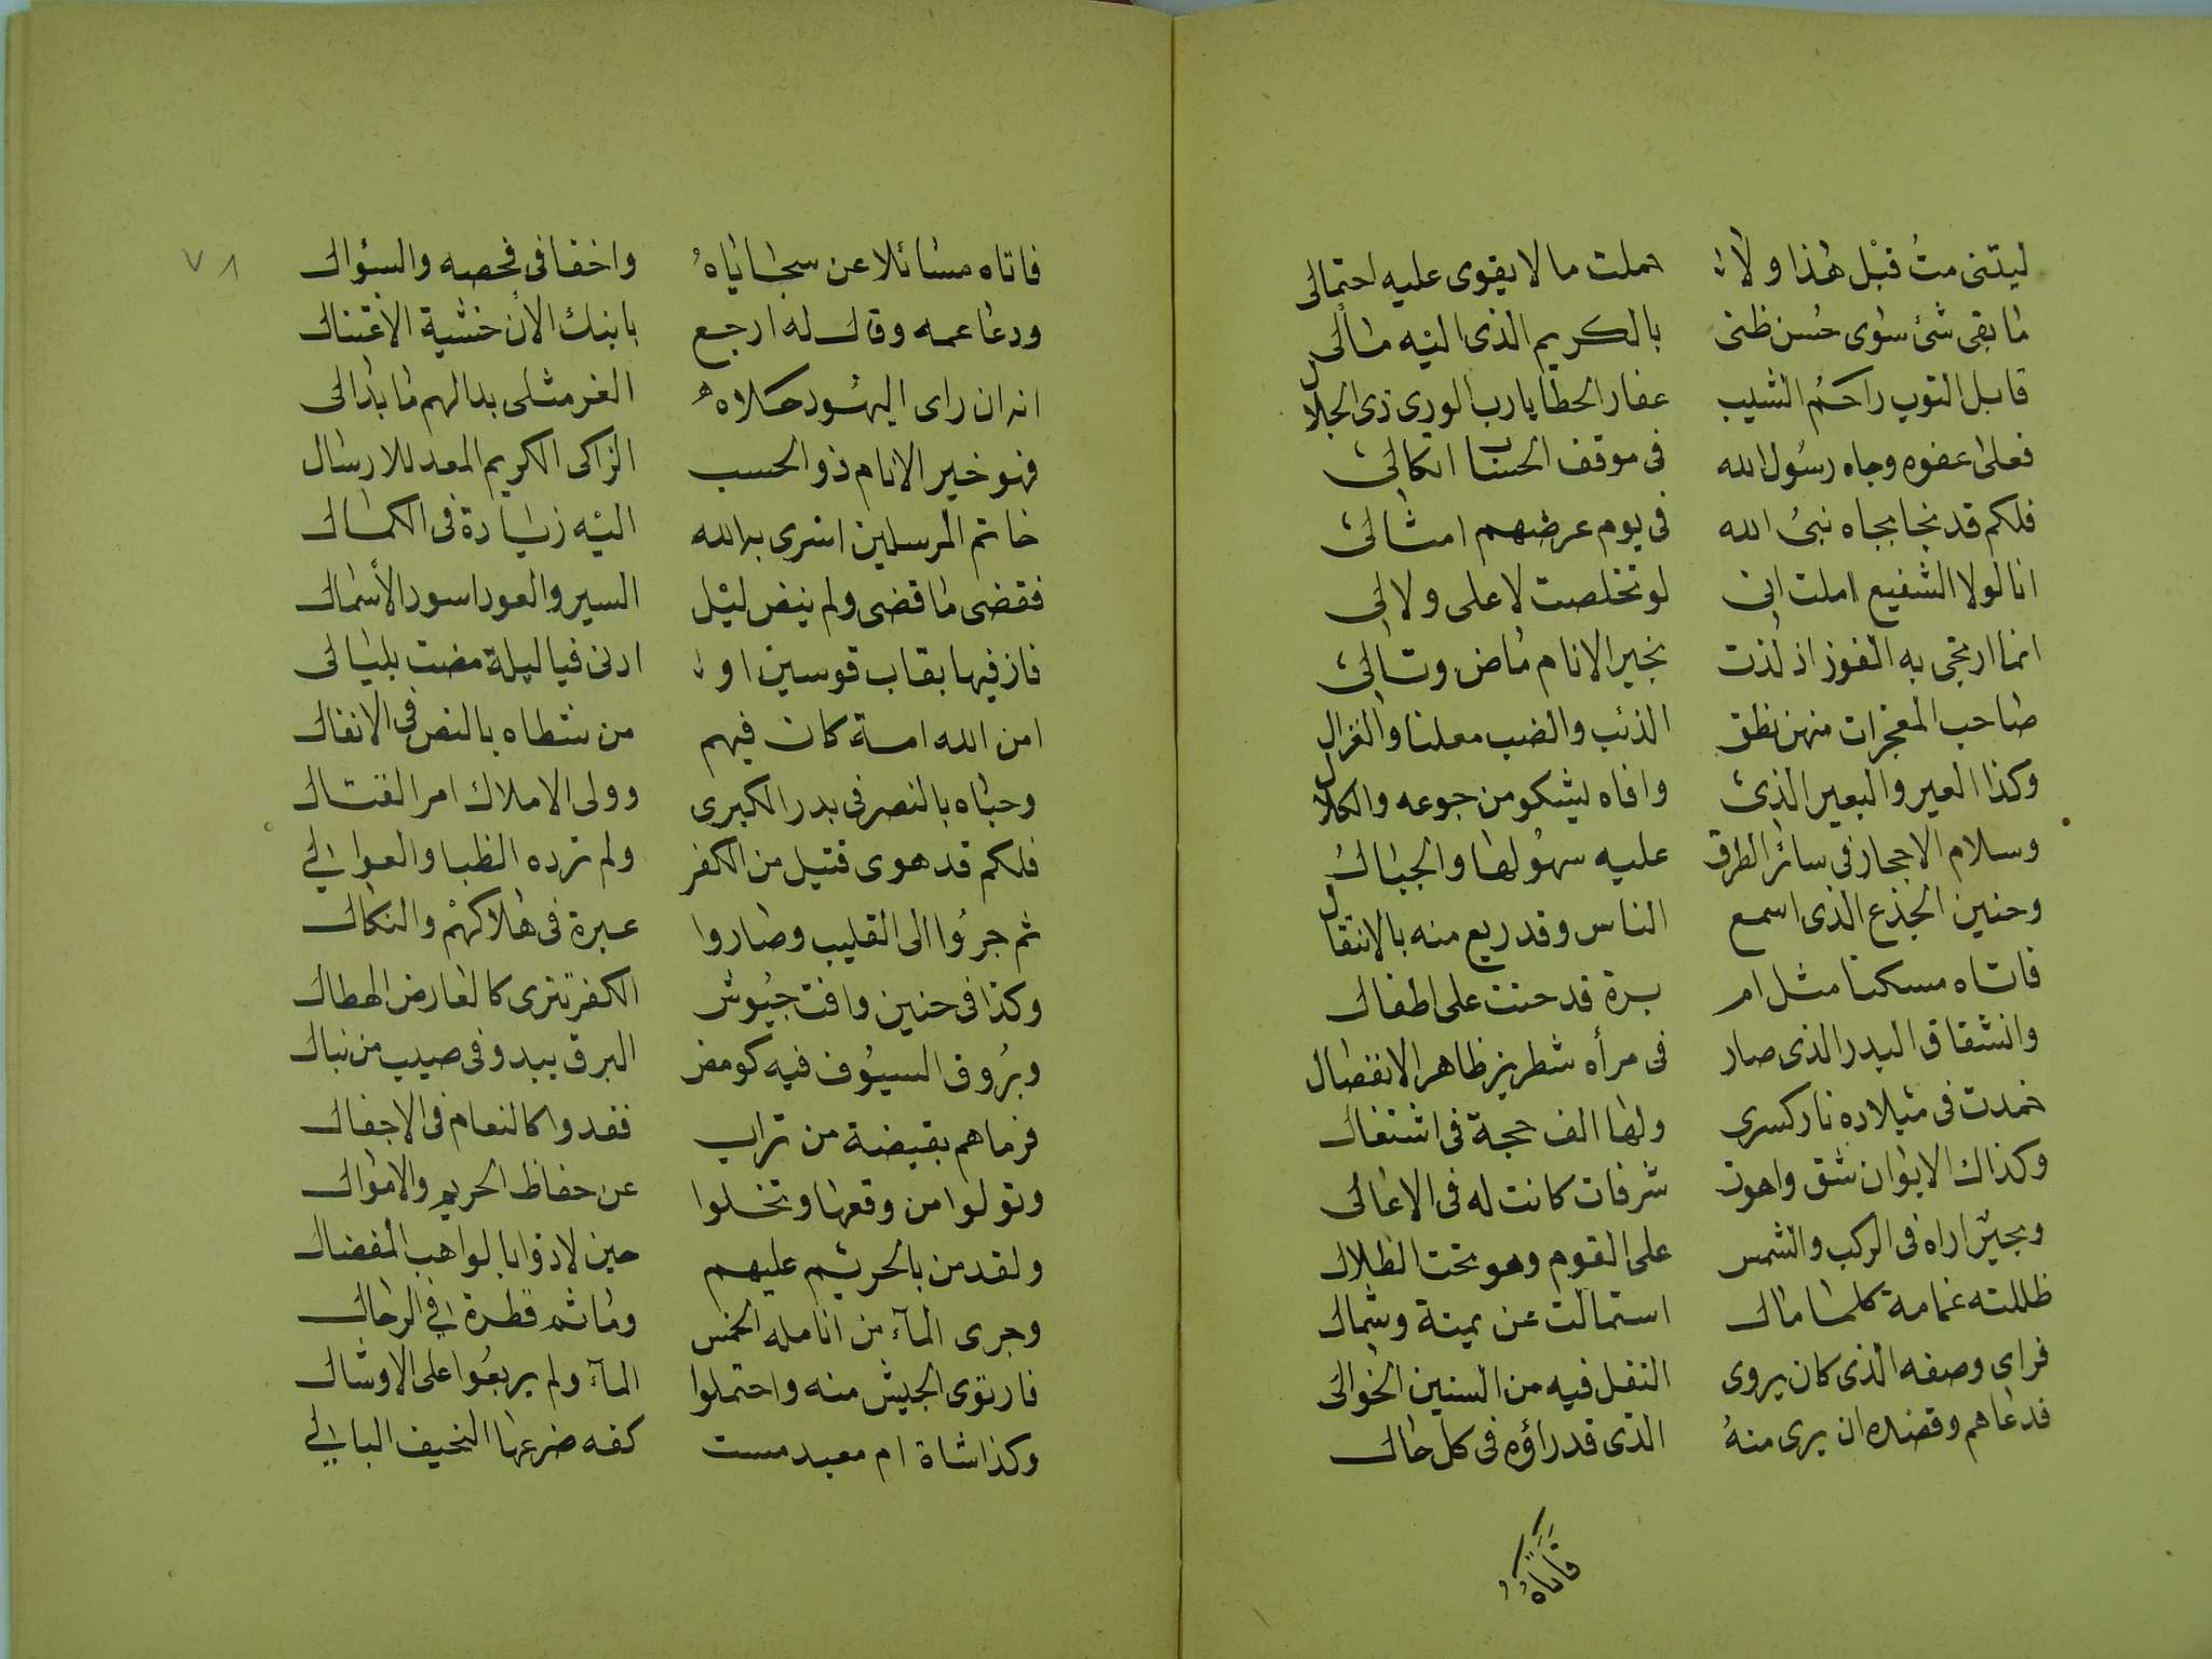 ليتنى متُ قبْل هذا ولا حملت ما لا يقوى عليه احتمالى
ما بقى شئ سوى حُسن ظنى بالكريم الذى اليْه مالى
قابل التوب راحمُ الشيب غفار الخطا يا رب الورى ذى الجلال
فعلى عفوه وجاه رسُول الله فى موقف الحساب اتكالى
فلكم قد نجا بجاه نبىُ الله فى يوم عرضهم امثالى
انا لولا الشفيع املت انى لو تخلصت لا على ولا لى
انما ارتجى به الفوز اذ لذت بخير الانام ماض وتالى
صاحب المعجزات منهن نطق الذئب والضب معلنا والغزال
وكذا العير والبعير الذى وافاه يشكو من جوعه والكلال
وسلام الاحجار فى سائر الطرق عليه سهُولها والجبال
وحنين الجذع الذى اسمع الناس وقد ريع منه بالانتقال
فاتاه مسكنا مثل ام برة قد حنت على اطفال
وانشقاق البدر الذى صار فى مرأه شطرين ظاهر الانفصال
خمدت فى ميلاده نار كسرى ولها الف حجة فى اشتغال
وكذاك الايوان شق واهوت شرفات كانت له فى الاعالى
وبحيرا اراه فى الركب والشمس على القوم وهو تحت الظلال
ظللته غمامة كلما مال استمالت عن يمنة وشمال
فراى وصفه الذى كان يروى النقل فيه من السنين الخوالى
فدعاهم وقصده ان يرى منهُ الذى قد راؤه فى كل حال
فاتاهُ
٧٨
فاتاه مسائلا عن سجاياهُ واخفا فى فحصه والسؤال
ودعا عمه وقال له ارجع بابنك الأن خشية الاغتيال
انه ان راى اليهُود حلاه الغر مثلى بدا لهم ما بدا لى
فهو خير الانام ذو الحسب الزاكى الكريم المعد للارسال
خاتم المرسلين اسرى به الله اليْه زيادة فى الكمال
فقضى ما قضى ولم ينض ليْل السير والعود اسود الأسمال
فاز فيها بقاب قوسين او ادنى فيا ليلة مضت بليالى
امن الله امة كان فيهم من سطاه بالنص فى الانفال
وحباه بالنصر فى بدر الكبرى وولى الاملاك امر القتال
فلكم قد هوى قتيل من الكفر ولم ترده الظبا والعوالى
ثم جرُوا الى القليب وصاروا عبرة فى هلاكهمْ والنكال
وكذا فى حنين وافت جيُوش الكفر تترى كالعارض الهطال
وبرُوق السيُوف فيه كومض البرق يبدو فى صيب من نبال
فرماهم بقبضة من تراب فغدوا كالنعام فى الاجفال
وتولوا من وقعها وتخلوا عن حفاظ الحريم والاموال
ولقد من بالحريْم عليهم حين لاذوا بالواهب المفضال
وجرى المآء من انامله الخمس وما ثم قطرة فى الرحال
فارتوى الجيش منه واحتملوا المآء ولم يربعُوا على الاوشال
وكذا شاة ام معبد مست كفه ضرعها النحيف البالى